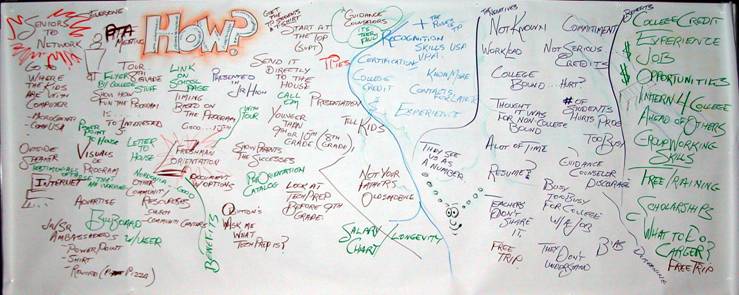 SENIORS
TO
NETWORK
EVERYONE
PTA
MEETING
HOW?
GO TO
WHERE
THE KIDS
ARE WITH
COMPUTER
- MICROCENTER
- COMPUSA
OUTSIDE
SPEAKER
TESTIMONIALS
INTERNET
JR/SR
AMBASSADORS
- POWERPOINT
- SHIRT
- REWARD
PIZZA
TOUR
FLYER
BY COLLEGE
8TH
GRADE
STAFF
SHOW HOW
FUN THE PROGRAM
IS
TO INTERESTED
POWER
POINT
VISUALS
PROGRAM
ADVERTISE
BILLBOARD
LETTER
TO
HOUSE
OTHER
COMMUNITY
RESOURCES
CHURCH
COMMUNITY CENTERS
LINK
ON
SCHOOL
PAGE
TIMING
BASED ON
THE PROGRAM
FRESHMAN
ORIENTATION
DOCUMENT
OPTIONS
BENEFITS
PRESENTED
IN
JR HIGH
WITH
TOUR
SHOW PARENTS
THE SUCCESSES
PRE ORIENTATION
CATALOG
BUTTONS
ASK ME
WHAT
TECH PREP IS?
GET
THE STUDENTS
A T-SHIRT
START AT
THE TOP
(SUPT)
SEND IT
DIRECTLY
TO THE
HOUSE
CALL
EM
YOUNGER
THAN
9TH OR 10TH
GRADE (8TH GRADE)
LOOK AT
TECH PREP
BEFORE 9TH
GRADE!
GUIDANCE
COUNSELORS
TIPS
CERTIFICATION
COLLEGE
CREDIT
PRESENTATION
TELL KIDS
NOT YOUR
FATHER'S
OLDSMOBILE
SALARY/LONGEVITY
CHART
RECOGNITION
SKILLS USA
VICA
KNOW MORE
CONTACTS
FOR LATER
EXPERIENCE
THEY SEE
US AS
A NUMBER
NOT KNOWN
WORKLOAD
COLLEGE
BOUND...HURT?
THOUGHT IT WAS
FOR NON-COLLEGE
BOUND
A LOT OF TIME
RESUME?
TEACHERS
DON'T
SHARE
IT.
FREE
TRIP
COMMITMENT
NOT SERIOUS
CREDITS
# OF
STUDENTS
HURTS PROG
TOO BUSY
GUIDANCE
COUNSELOR
DISCOURAGE
BUSY
TOO BUSY
FOR COLLEGE
W/A JOB
THEY
DON'T
UNDERSTAND
BIAS
BENEFITS
COLLEGE CREDIT
EXPERIENCE
$ JOB
$ OPPORTUNITIES
INTERN 4 COLLEGE
AHEAD OF OTHERS
GROUP WORKING
SKILLS
FREE TRAINING
SCHOLARSHIPS
WHAT TO DO
CAREER?
FREE TRIP
DETERMINE